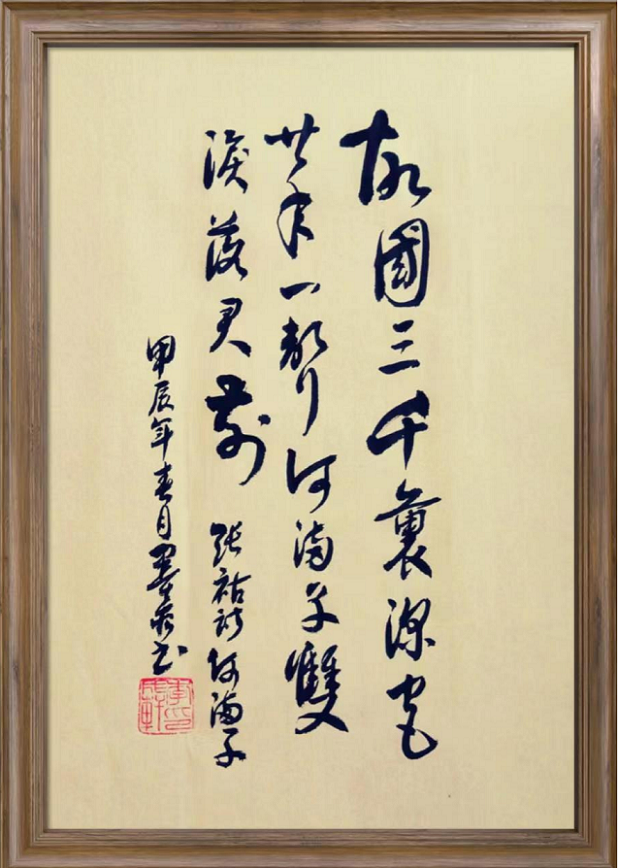 故國三千裏深宮
廿年一聲何滿子雙
淚落君前 張祜詩何滿子
甲辰年春月書